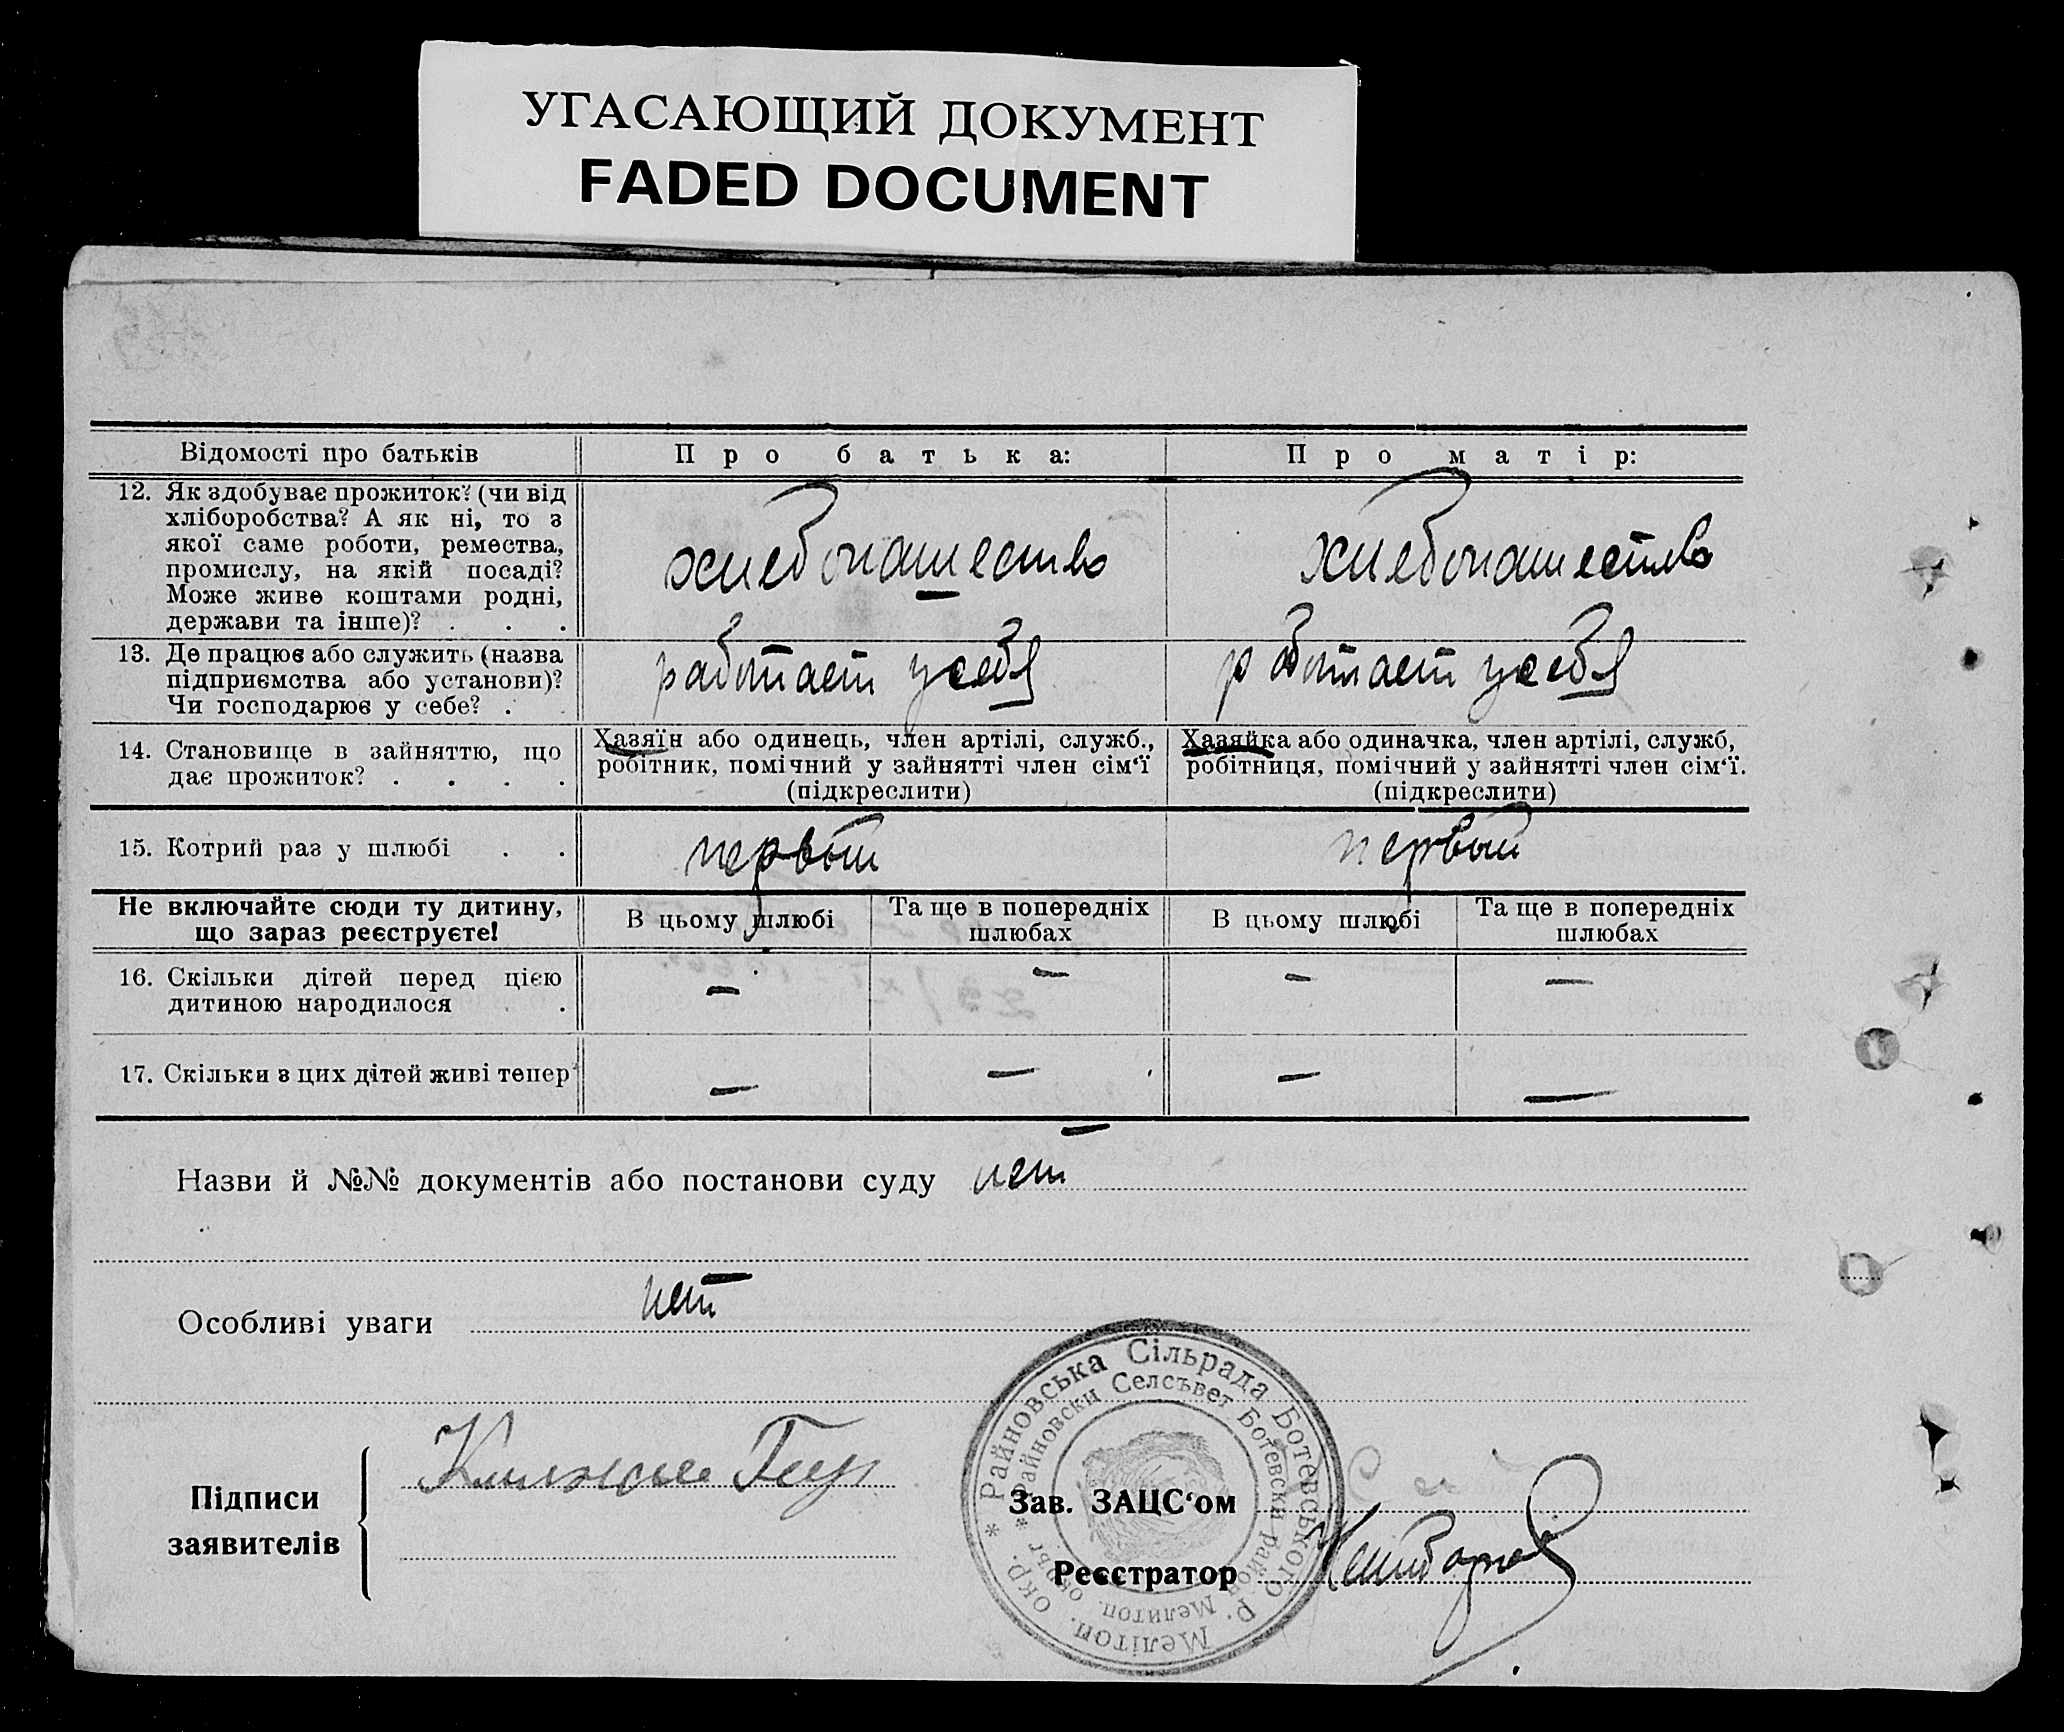 УГАСАЮЩИЙ ДОКУМЕНТ
FADED DOCUMENT
Відомості про батьків
Про батька:
Про матір:
12. Як здобуває прожиток? (чи від
хліборобства? А як ні, то з
якої саме роботи, ремества,
промислу, на якій посаді?
Може живе коштами родні,
держави та інше)? . . .
хлебопашество
хлебопашество
13. Де працює або служить (назва
підприємства або установи)?
Чи господарює у себе? . .
работает у себя
работает у себя
14. Становище в зайняттю, що
дає прожиток? . . . .
Хазяїн або одинець, член артілі, служб.,
робітник, помічний у зайнятті член сім'ї
(підкреслити)
Хазяйка або одиначка, член артілі, служб,
робітниця, помічний у зайнятті член сім'ї.
(підкреслити)
15. Котрий раз у шлюбі . .
первый
первый
Не включайте сюди ту дитину,
що зараз реєструєте!
В цьому шлюбі
Та ще в попередніх
шлюбах
В цьому шлюбі
Та ще в попередніх
шлюбах
16. Скільки дітей перед цією
дитиною народилося .
—
—
—
—
17. Скільки з цих дітей живі тепер
—
—
—
—
Назви й №№ документів або постанови суду нет
Особливі уваги нет
Підписи
заявителів
Зав. ЗАЦС'ом
Реєстратор
* Райновська Сільрада Ботевського р. Мелітоп. окр.
* Райновски Селсъвет Ботевски район Мелитоп. окръг